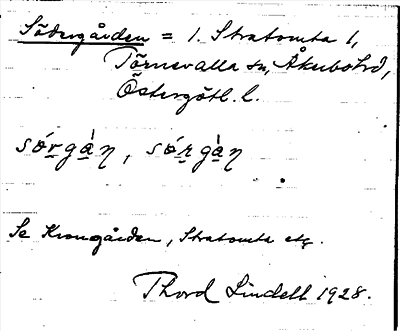 Södergården = 1. Stratomta 1,
Törnevalla sn, Åkerbo hd,
Östergötl. l.
sórgàn, sórgàn
Se Krongården, Stratomta etc.
Thord Lindell 1928.